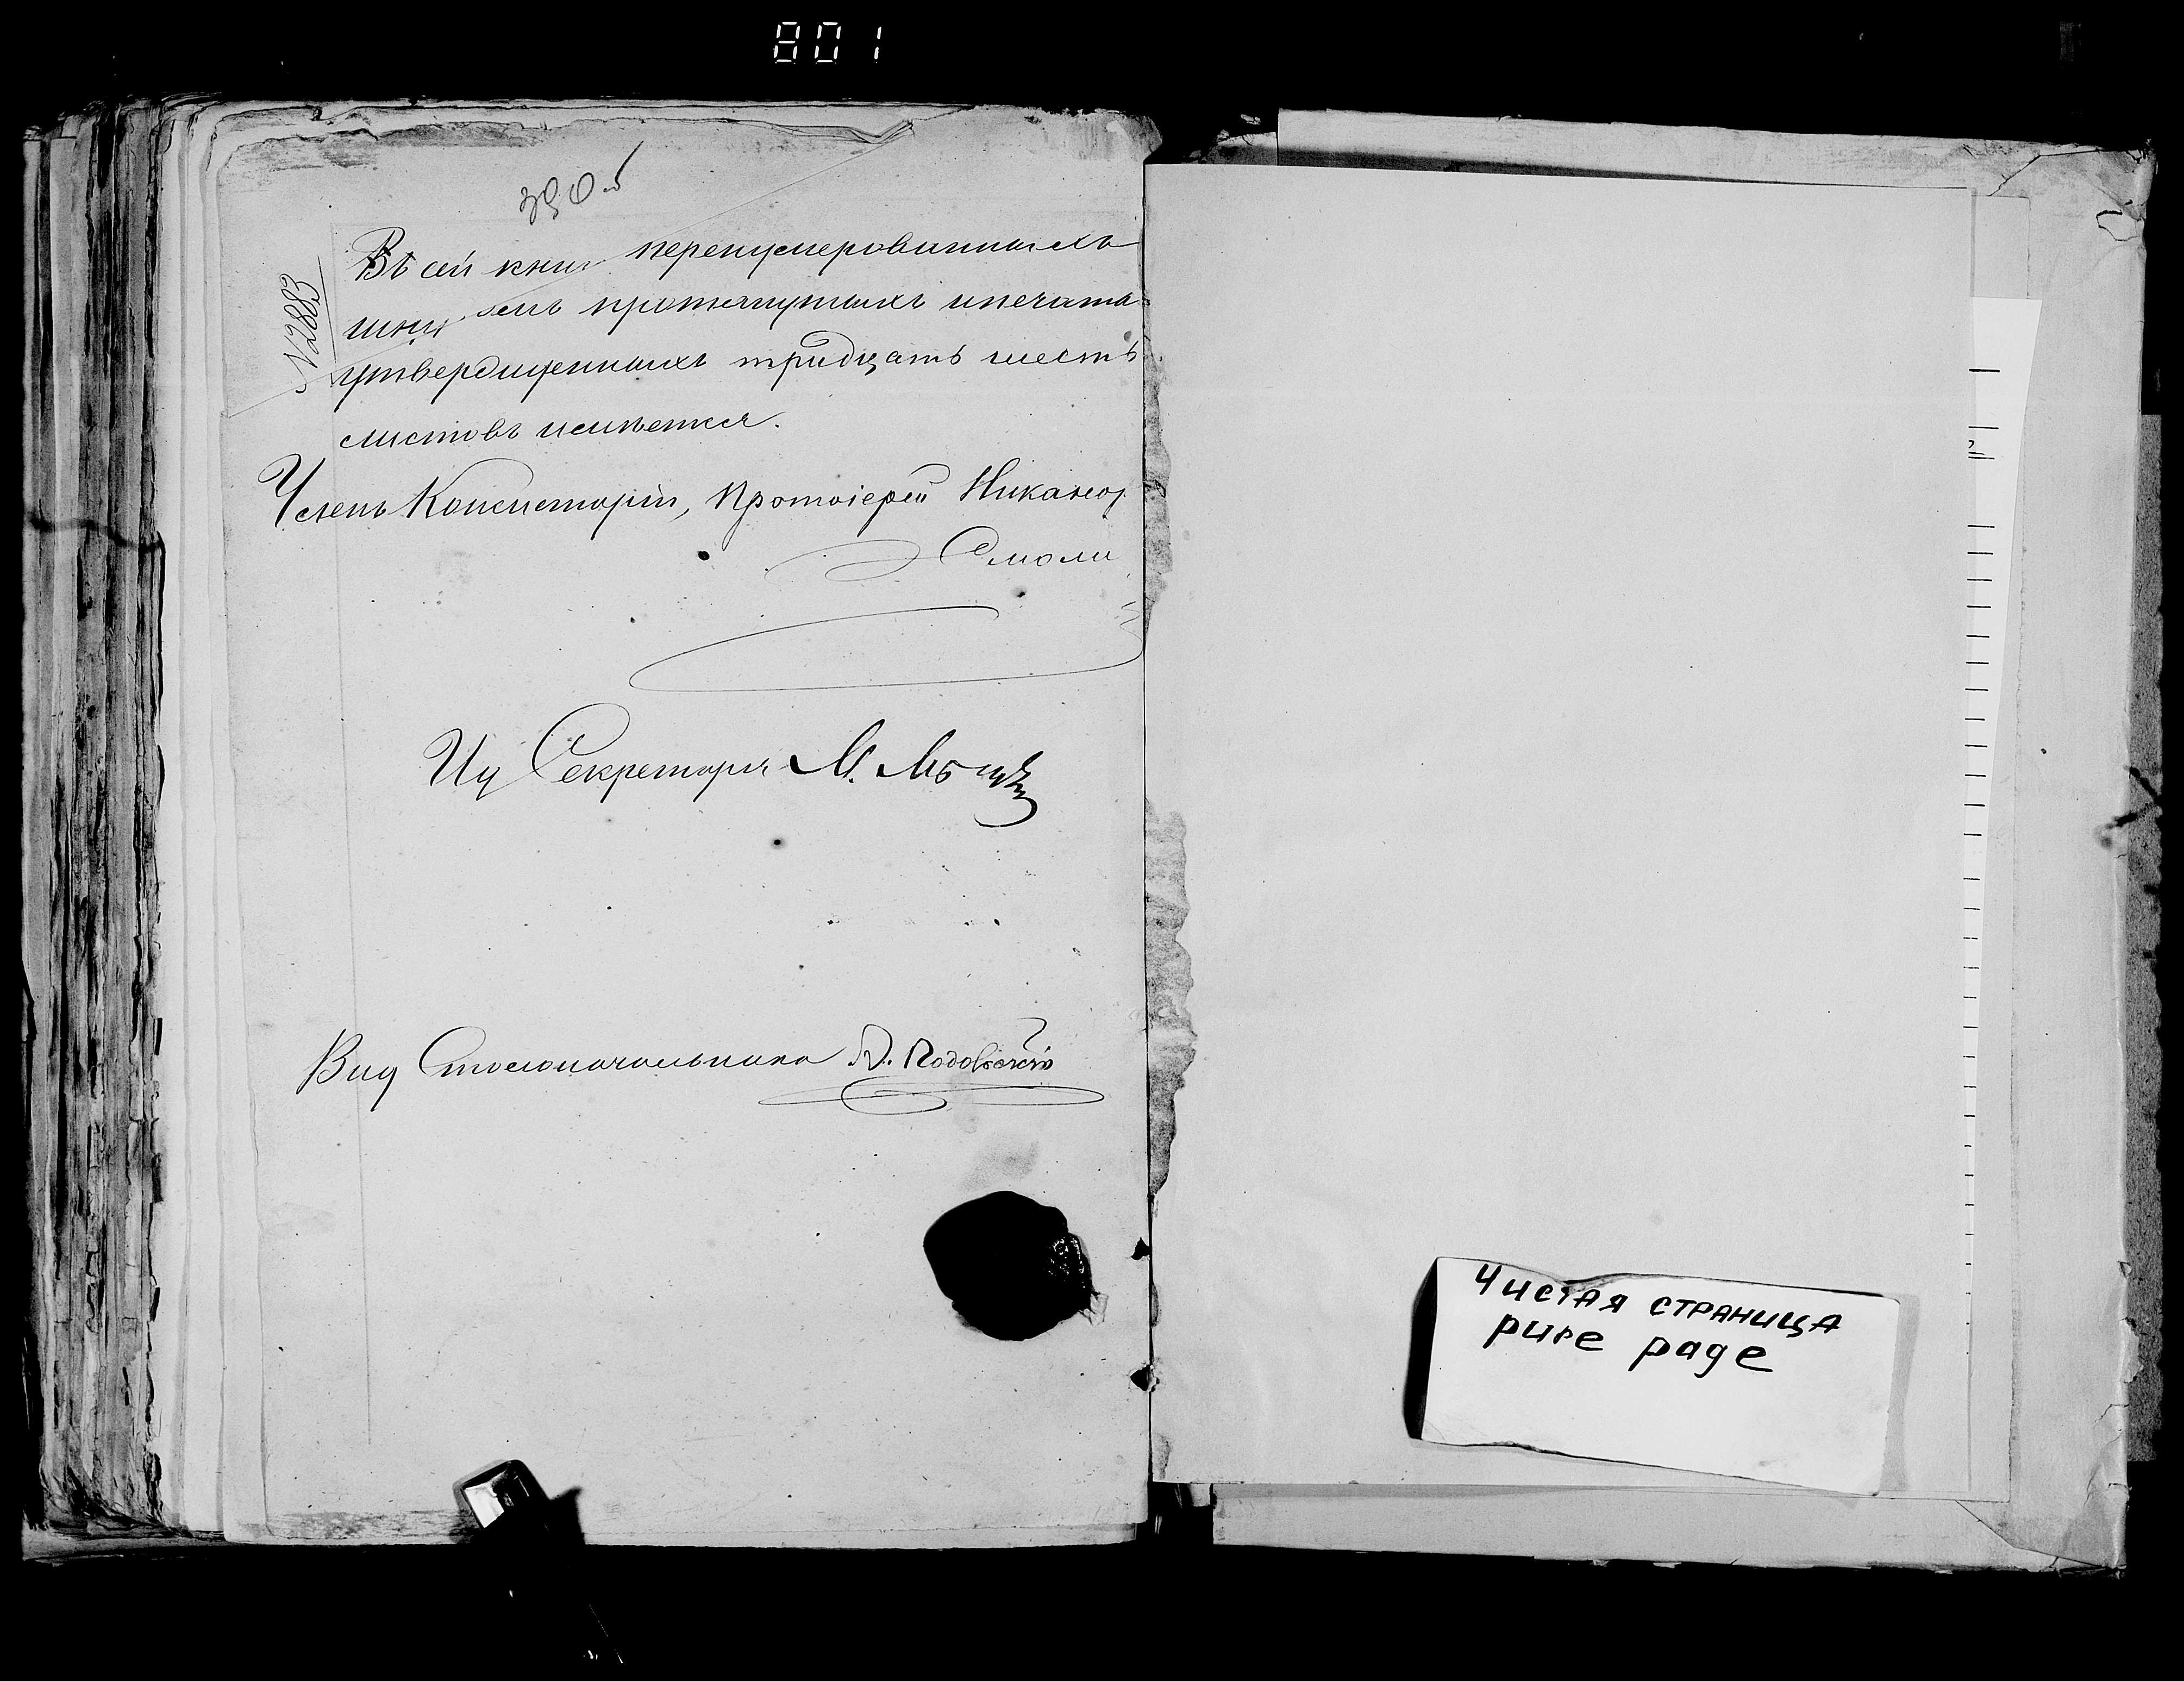 801
390б
№ 2883
Въ сей книг перенумерованныхъ
шну емъ протянутыхъ и печата
утвержденныхъ тридцать шесть
листовъ имѣется.
Членъ Консисторіи, Протоіерей Никанор
Смоли
Ид Секретаря М.
Вид Столоначальника
Чистая страница
pure page